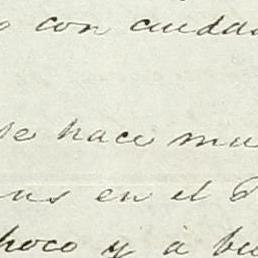 con cuida
se hace mu
en el
poco y á bu